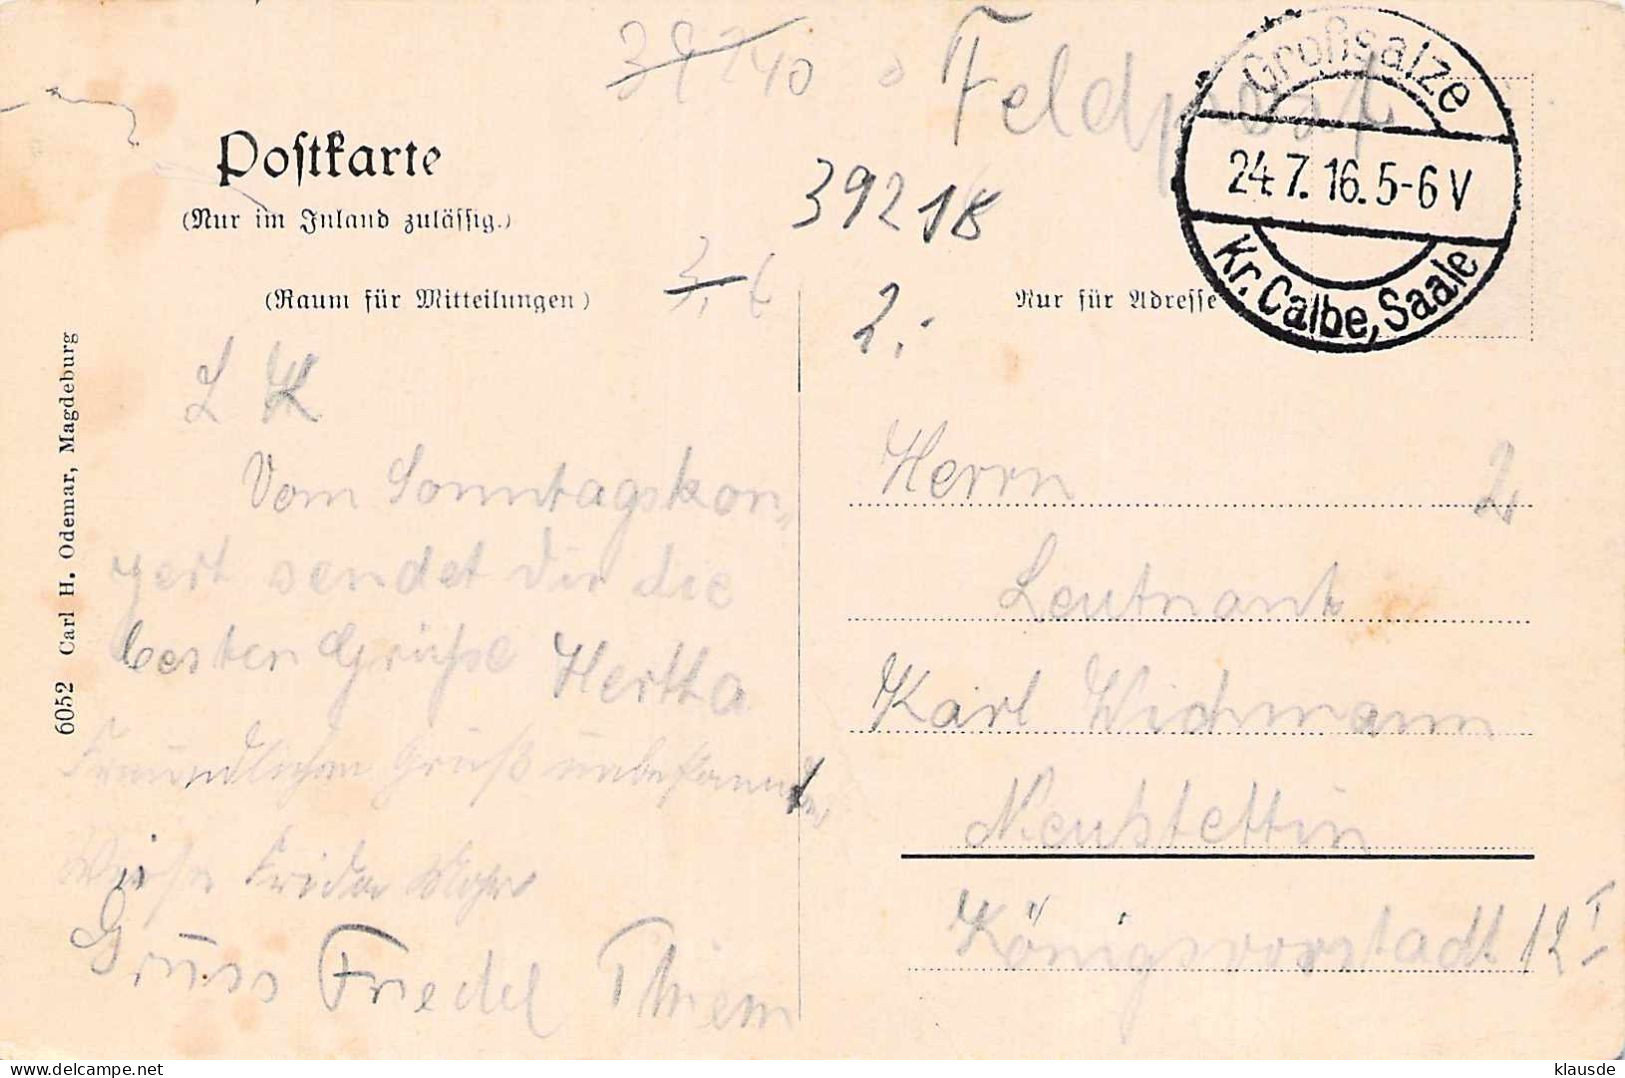 39240
Feldpost
Großsalze
24.7.16.5-6V
Kr. Calbe, Saale
Postkarte
(Nur im Inland zulässig.)
39218
3.
2.
(Raum für Mitteilungen)
Nur für Adresse
6052 Carl H. Odemar, Magdeburg
L K
Vom Sonntagskon„
zert sendet Dir die
besten Grüße Hertha
Freundlichen Gruß unbekannter
Weise Frida Mohr
Gruss Friedel Thiem
Herrn
2
Leutnant
Karl Wichmann
Neustettin
Königsvorstadt 12 I
klausde